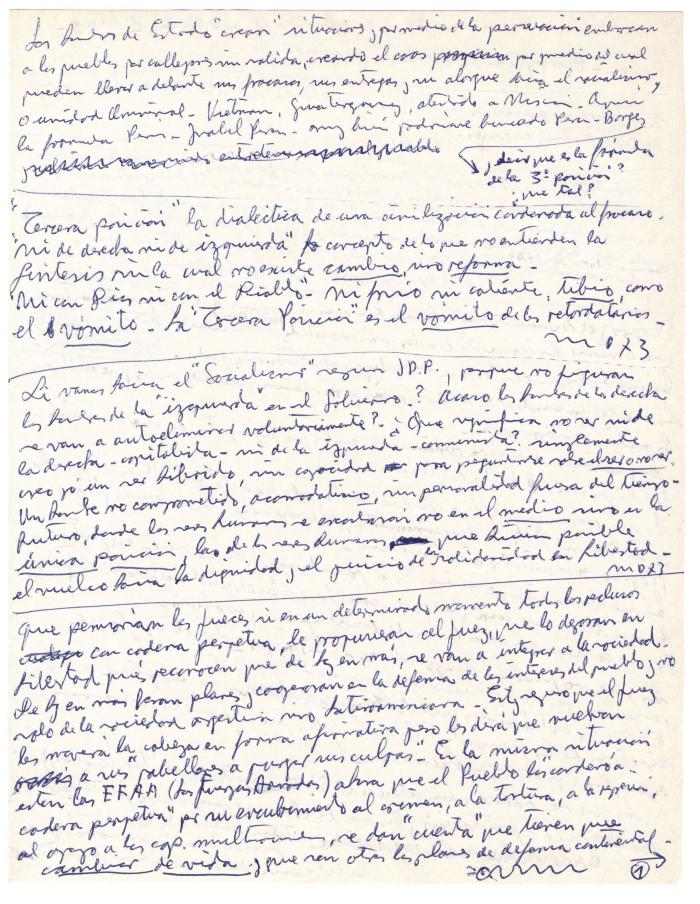 Los hombres de Estado "crean" situaciones, y por medio de la persuación embarcan
a los pueblos por callejones sin salida, creando el caos por medio del cual
pueden llevar adelante sus fracasos, sus entregas, su alergia hacia el socialismo,
o unidad Universal - Vietnam, Watergate, atentado a - Aquí
la formula Perón - Isabel Perón - muy bien podríase llamado Perón - Borges
y decir que es la fórmula
de la 3ª posición?
¿que tal?
"Tercera posición" la dialéctica de una civilización condenada al fracaso.
"Ni de derecha ni de izquierda" concepto de lo que no entienden la
Síntesis sin la cual no existe cambio, sino reforma -
"Ni con Dios ni con el Diablo" - Ni frío ni caliente, tibio, como
el vómito - La "Tercera Posición" es el vómito de los retardatarios -
Si vamos hacia el "Socialismo" según J.D.P., porque no figuran
los hombres de la "izquierda" en el Gobierno? Acaso los hombres de la derecha
se van a autoeliminar voluntariamente? - ¿Que significa no ser ni de
la derecha - capitalista - ni de la izquierda - comunista? simplemente
creo yó un ser híbrido, sin capacidad para preguntarse sobre el ser o no ser.
Un hombre no comprometido, acomodaticio, sin personalidad fuera del tiempo -
Futuro, donde los seres humanos se encontrarán no en el medio sino en la
única posición, la de los seres humanos que hicieron posible
el vuelco hacia la dignidad, y el juicio de la solidaridad en Libertad -
Que pensarían los jueces si en un determinado momento todos los reclusos
con cadena perpetua, le propusieran al juez, que lo dejaran en
Libertad pués reconocen que de hoy en más, se van a integrar a la sociedad.
De hoy en más haran planes y cooperaran en la defensa de los intereses del pueblo y no
solo de la sociedad argentina sino Latinoamericana - Estoy seguro que el juez
les moverá la cabeza en forma afirmativa pero les dirá que vuelvan
a sus "pabellones a purgar sus culpas" - En la misma situación
estan las FFAA (Las Fuerzas Armadas) ahora que el Pueblo los "condenó a
cadena perpetua" por su encubrimiento al crimen, a la tortura, a la represión,
al apoyo a los cap. multinacionales, se dan "cuenta" que tienen que
cambiar de vida. y que son otros los planes de defensa continental -
1